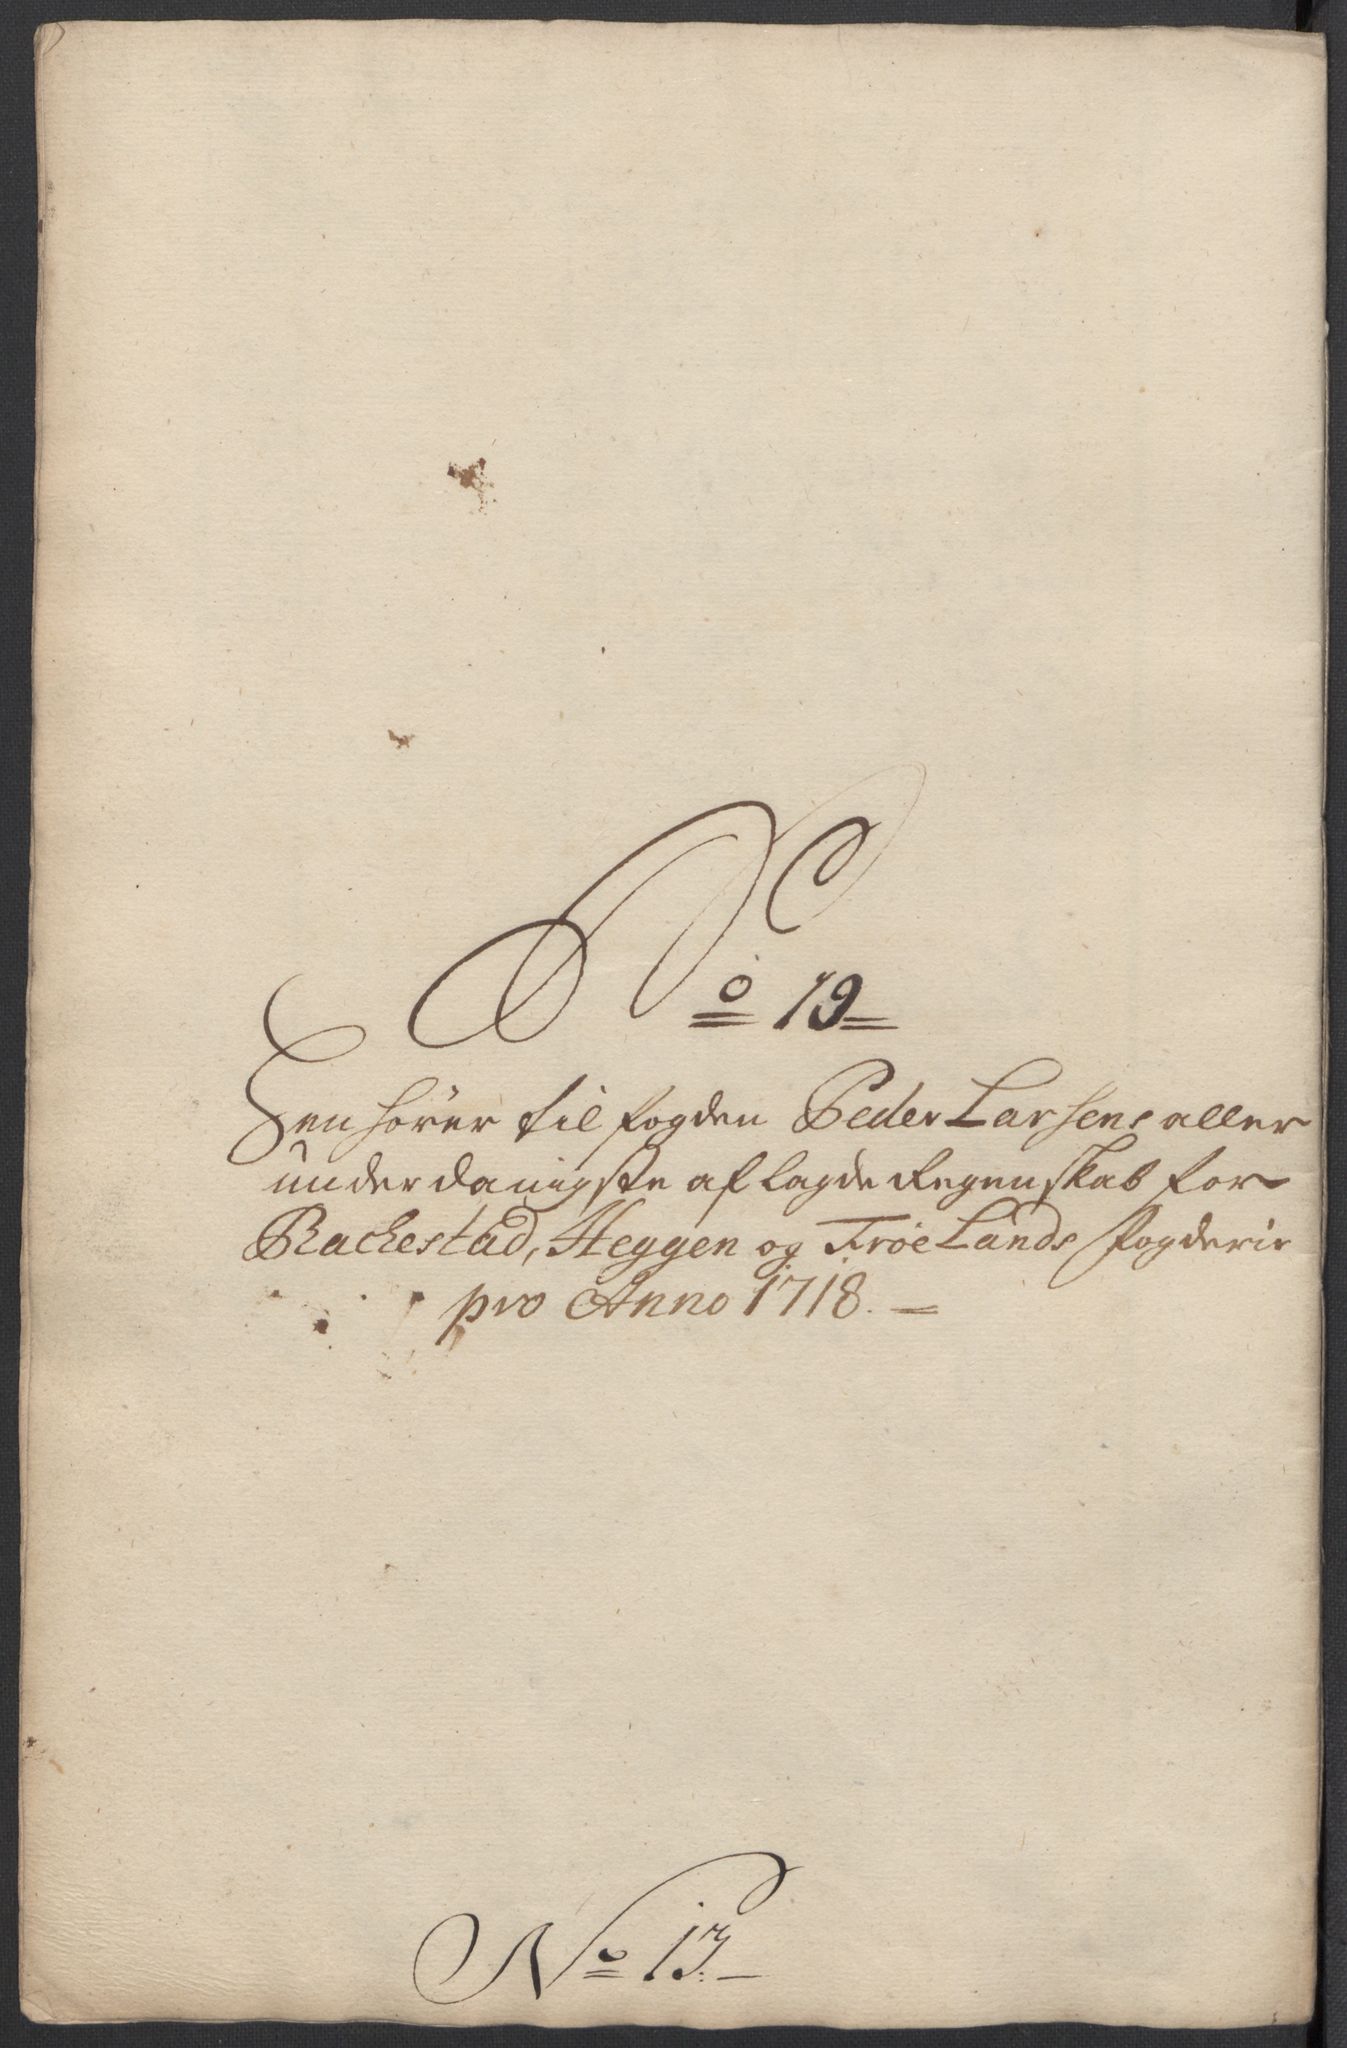 No 19
Henhører til fogden Peder Larsens aller
underdanigste aflagde Regenskab for
Rachestad, Heggen og Frøelands fogderie
pro Anno 1718.
No 13.